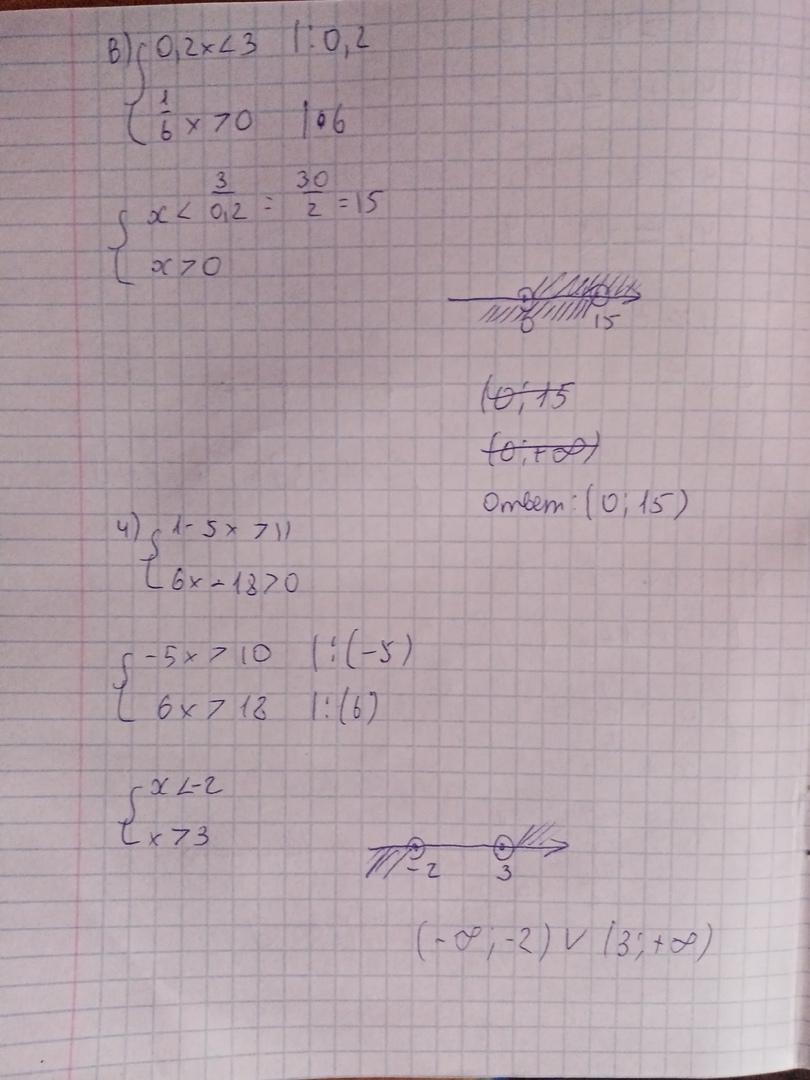 в) { 0,2x<3 |:0,2
1/6 x >0 |•6
{ x < 3/0,2 = 30/2 = 15
x >0
0 15
(0; 15
(0; +∞)
Ответ: (0; 15)
ч) { 1-5x >11
6x - 18>0
{ -5x > 10 |:(-5)
6x > 18 |:(6)
{ x <-2
x >3
-2 3
(-∞; -2) ∨ (3; +∞)